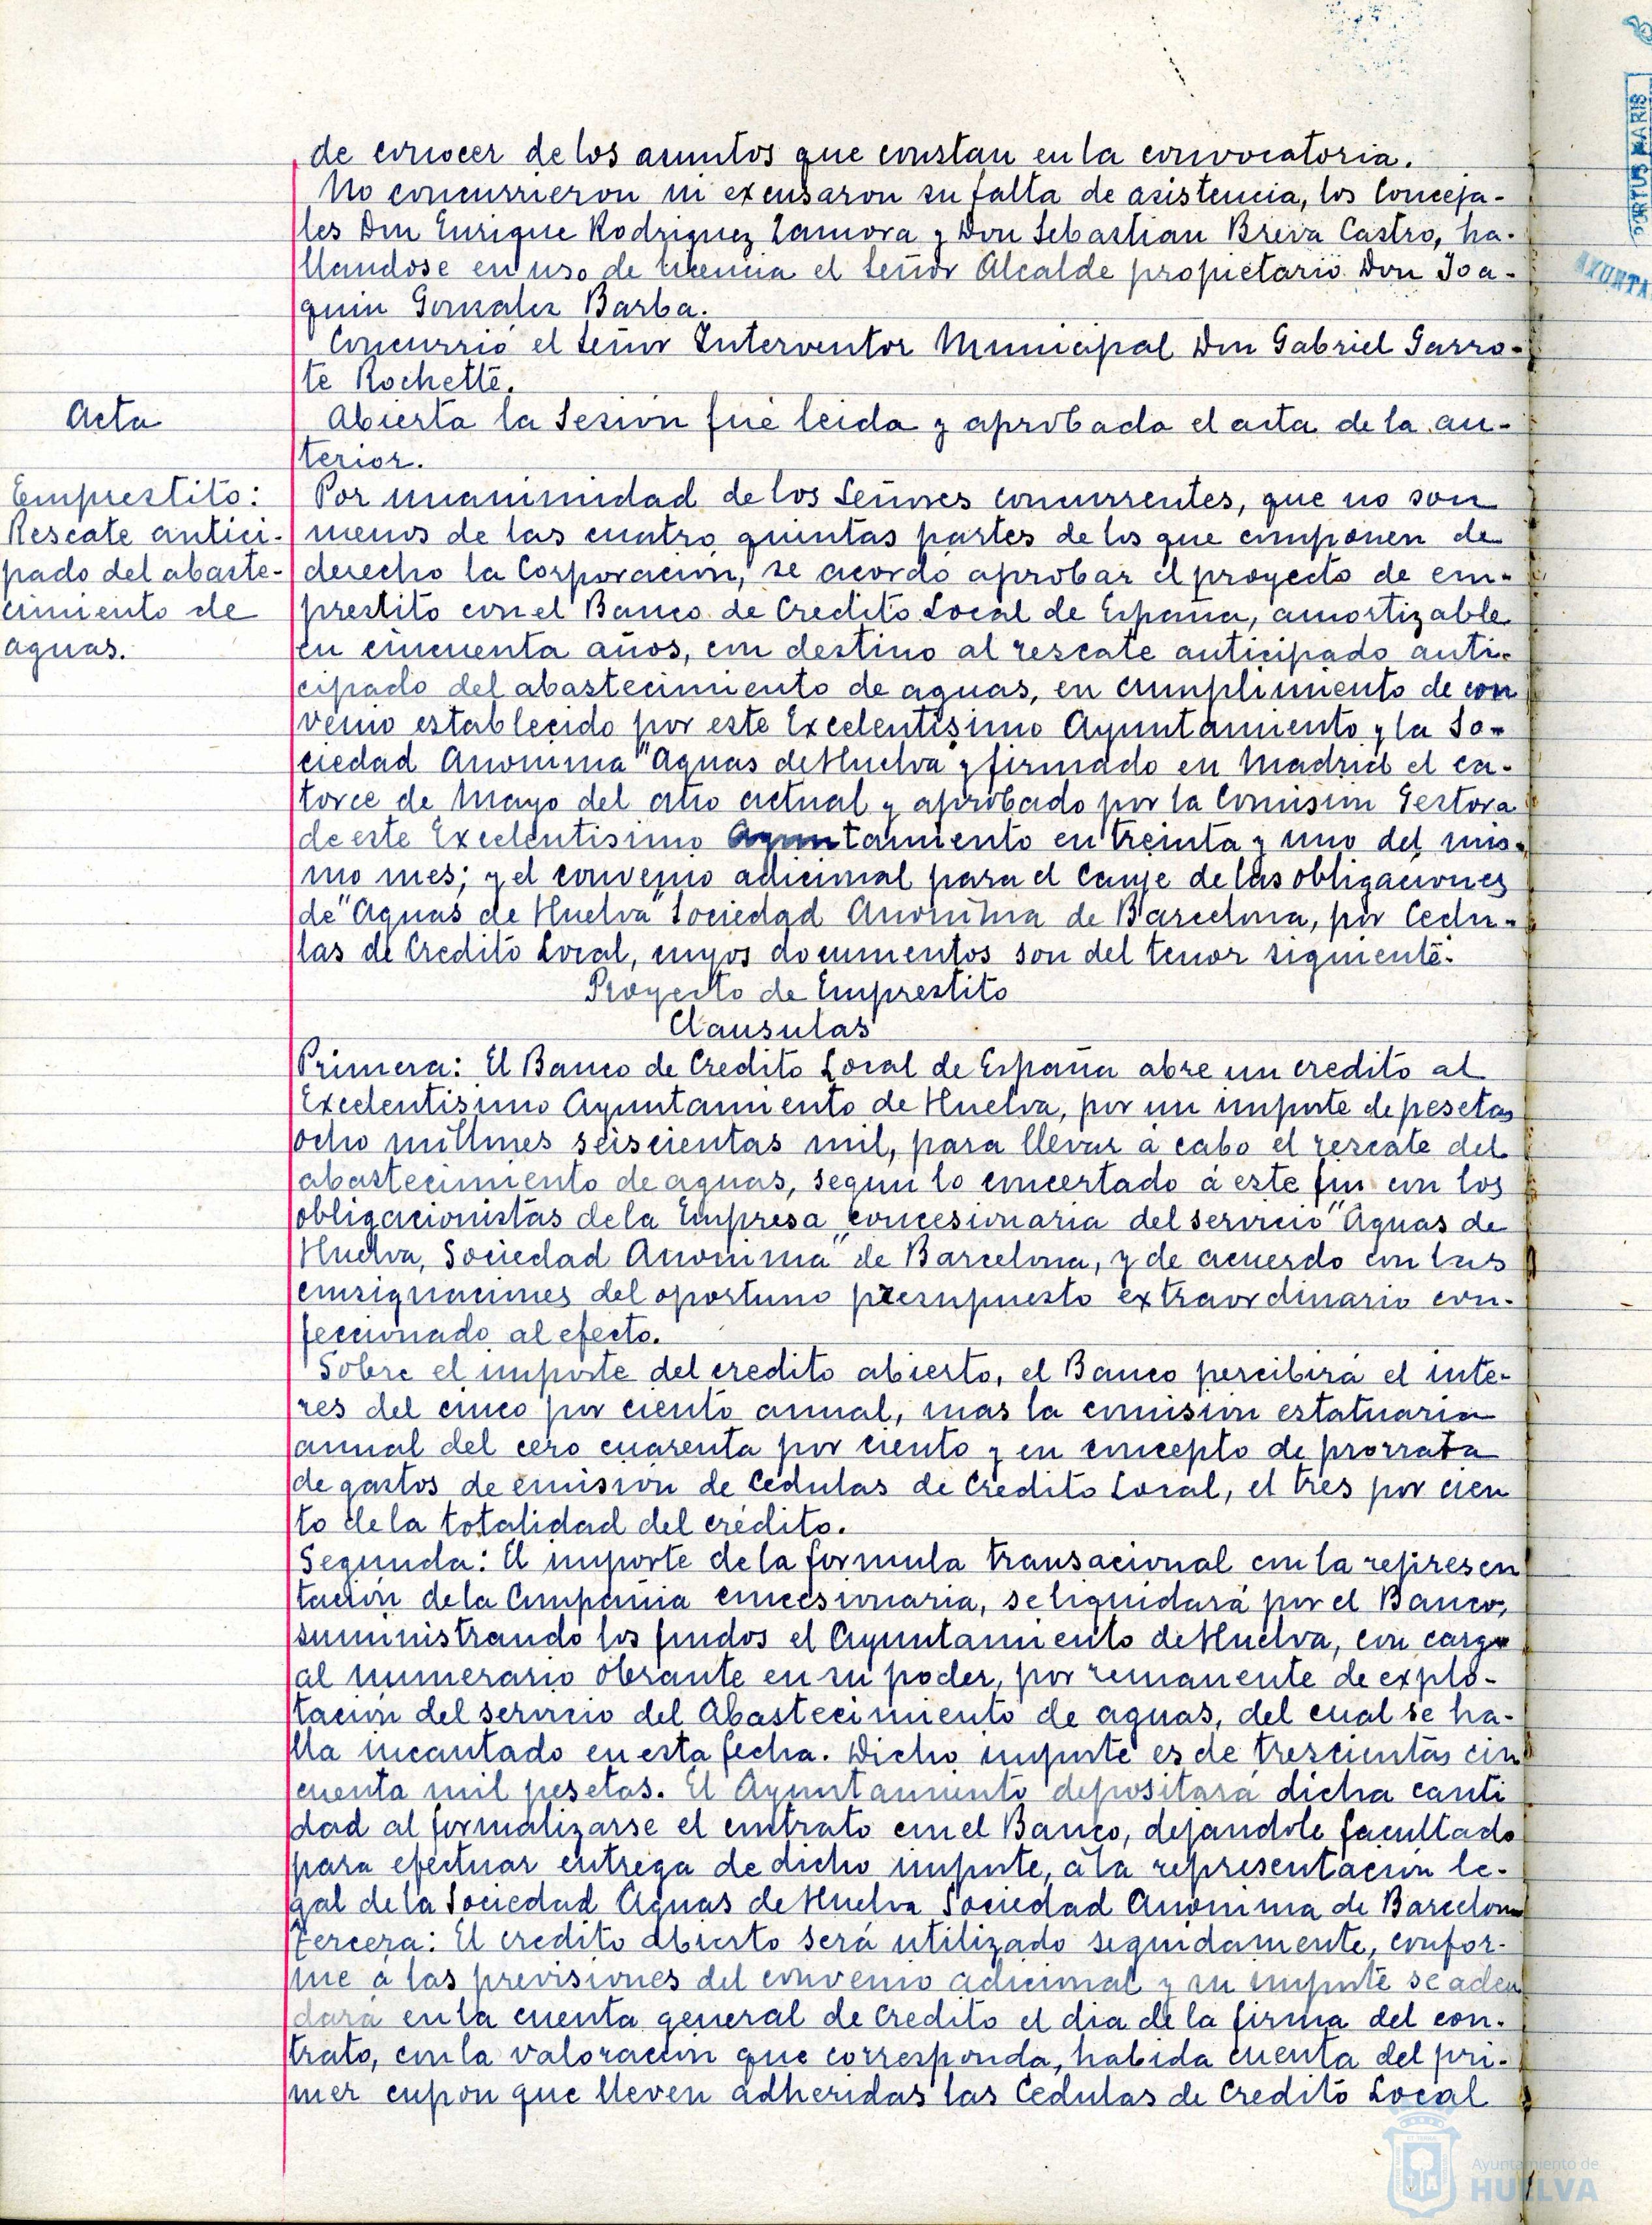 de conocer de los asuntos que constan en la convocatoria.
No concurrieron ni excusaron su falta de asistencia, los Conceja-
les Don Enrique Rodriguez Zamora y Don Sebastian Breva Castro, ha-
llandose en uso de licencia el Señor Alcalde propietario Don Joa-
quin Gonzalez Barba.
Concurrió el Señor Interventor Municipal Don Gabriel Garro-
te Rochette.
Acta
Abierta la Sesión fué leida y aprobada el acta de la an-
terior.
Emprestito:
Rescate antici-
pado del abaste-
cimiento de
aguas.
Por unanimidad de los Señores concurrentes, que no son
menos de las cuatro quintas partes de los que componen de
derecho la Corporación, se acordó aprobar el proyecto de em-
prestito con el Banco de Credito Local de España, amortizable
en cincuenta años, con destino al rescate anticipado anti-
cipado del abastecimiento de aguas, en cumplimiento de con
venio establecido por este Excelentisimo Ayuntamiento y la So-
ciedad Anonima "Aguas de Huelva y firmado en Madrid el ca-
torce de Mayo del año actual y aprobado por la Comision Gestora
de este Excelentisimo Ayuntamiento en treinta y uno del mis-
mo mes; y el convenio adicional para el Canje de las obligaciones
de "Aguas de Huelva" Sociedad Anonima de Barcelona, por Cedu-
las de Credito Local, cuyos documentos son del tenor siguiente:
Proyecto de Emprestito
Clausulas
Primera: El Banco de Credito Local de España abre un credito al
Excelentisimo Ayuntamiento de Huelva, por un importe de pesetas
ocho millones seiscientas mil, para llevar á cabo el rescate del
abastecimiento de aguas, segun lo concertado á este fin con los
obligacionistas de la Empresa concesionaria del servicio "Aguas de
Huelva, Sociedad Anonima" de Barcelona, y de acuerdo con las
consignaciones del oportuno presupuesto extraordinario con-
feccionado al efecto.
Sobre el importe del credito abierto, el Banco percibirá el inte-
res del cinco por ciento annual, mas la comision estatuaria
annual del cero cuarenta por ciento y en concepto de prorrata
de gastos de emisión de Cedulas de Credito Local, el tres por cien
to de la totalidad del crédito.
Segunda: El importe de la formula transacional con la represen
tación de la Compañia concesionaria, se liquidará por el Banco,
suministrando los fondos el Ayuntamiento de Huelva, con cargo
al numerario obrante en su poder, por remanente de explo-
tación del servicio del Abastecimiento de aguas, del cual se ha-
lla incautado en esta fecha. Dicho importe es de trescientas cin
cuenta mil pesetas. El Ayuntamiento depositará dicha canti
dad al formalizarse el contrato con el Banco, dejandole facultado
para efectuar entrega de dicho importe, á la representación le-
gal de la Sociedad Aguas de Huelva Sociedad Anónima de Barcelona
Tercera: El credito abierto será utilizado seguidamente, confor-
me á las previsiones del convenio adicional y su importe se adeu
dará en la cuenta general de Credito el dia de la firma del con-
trato, con la valoración que corresponda, habida cuenta del pri-
mer cupon que lleven adheridas las Cedulas de Credito Local
PORTUS MARIS
AYUNTA
Ayuntamiento de
HUELVA